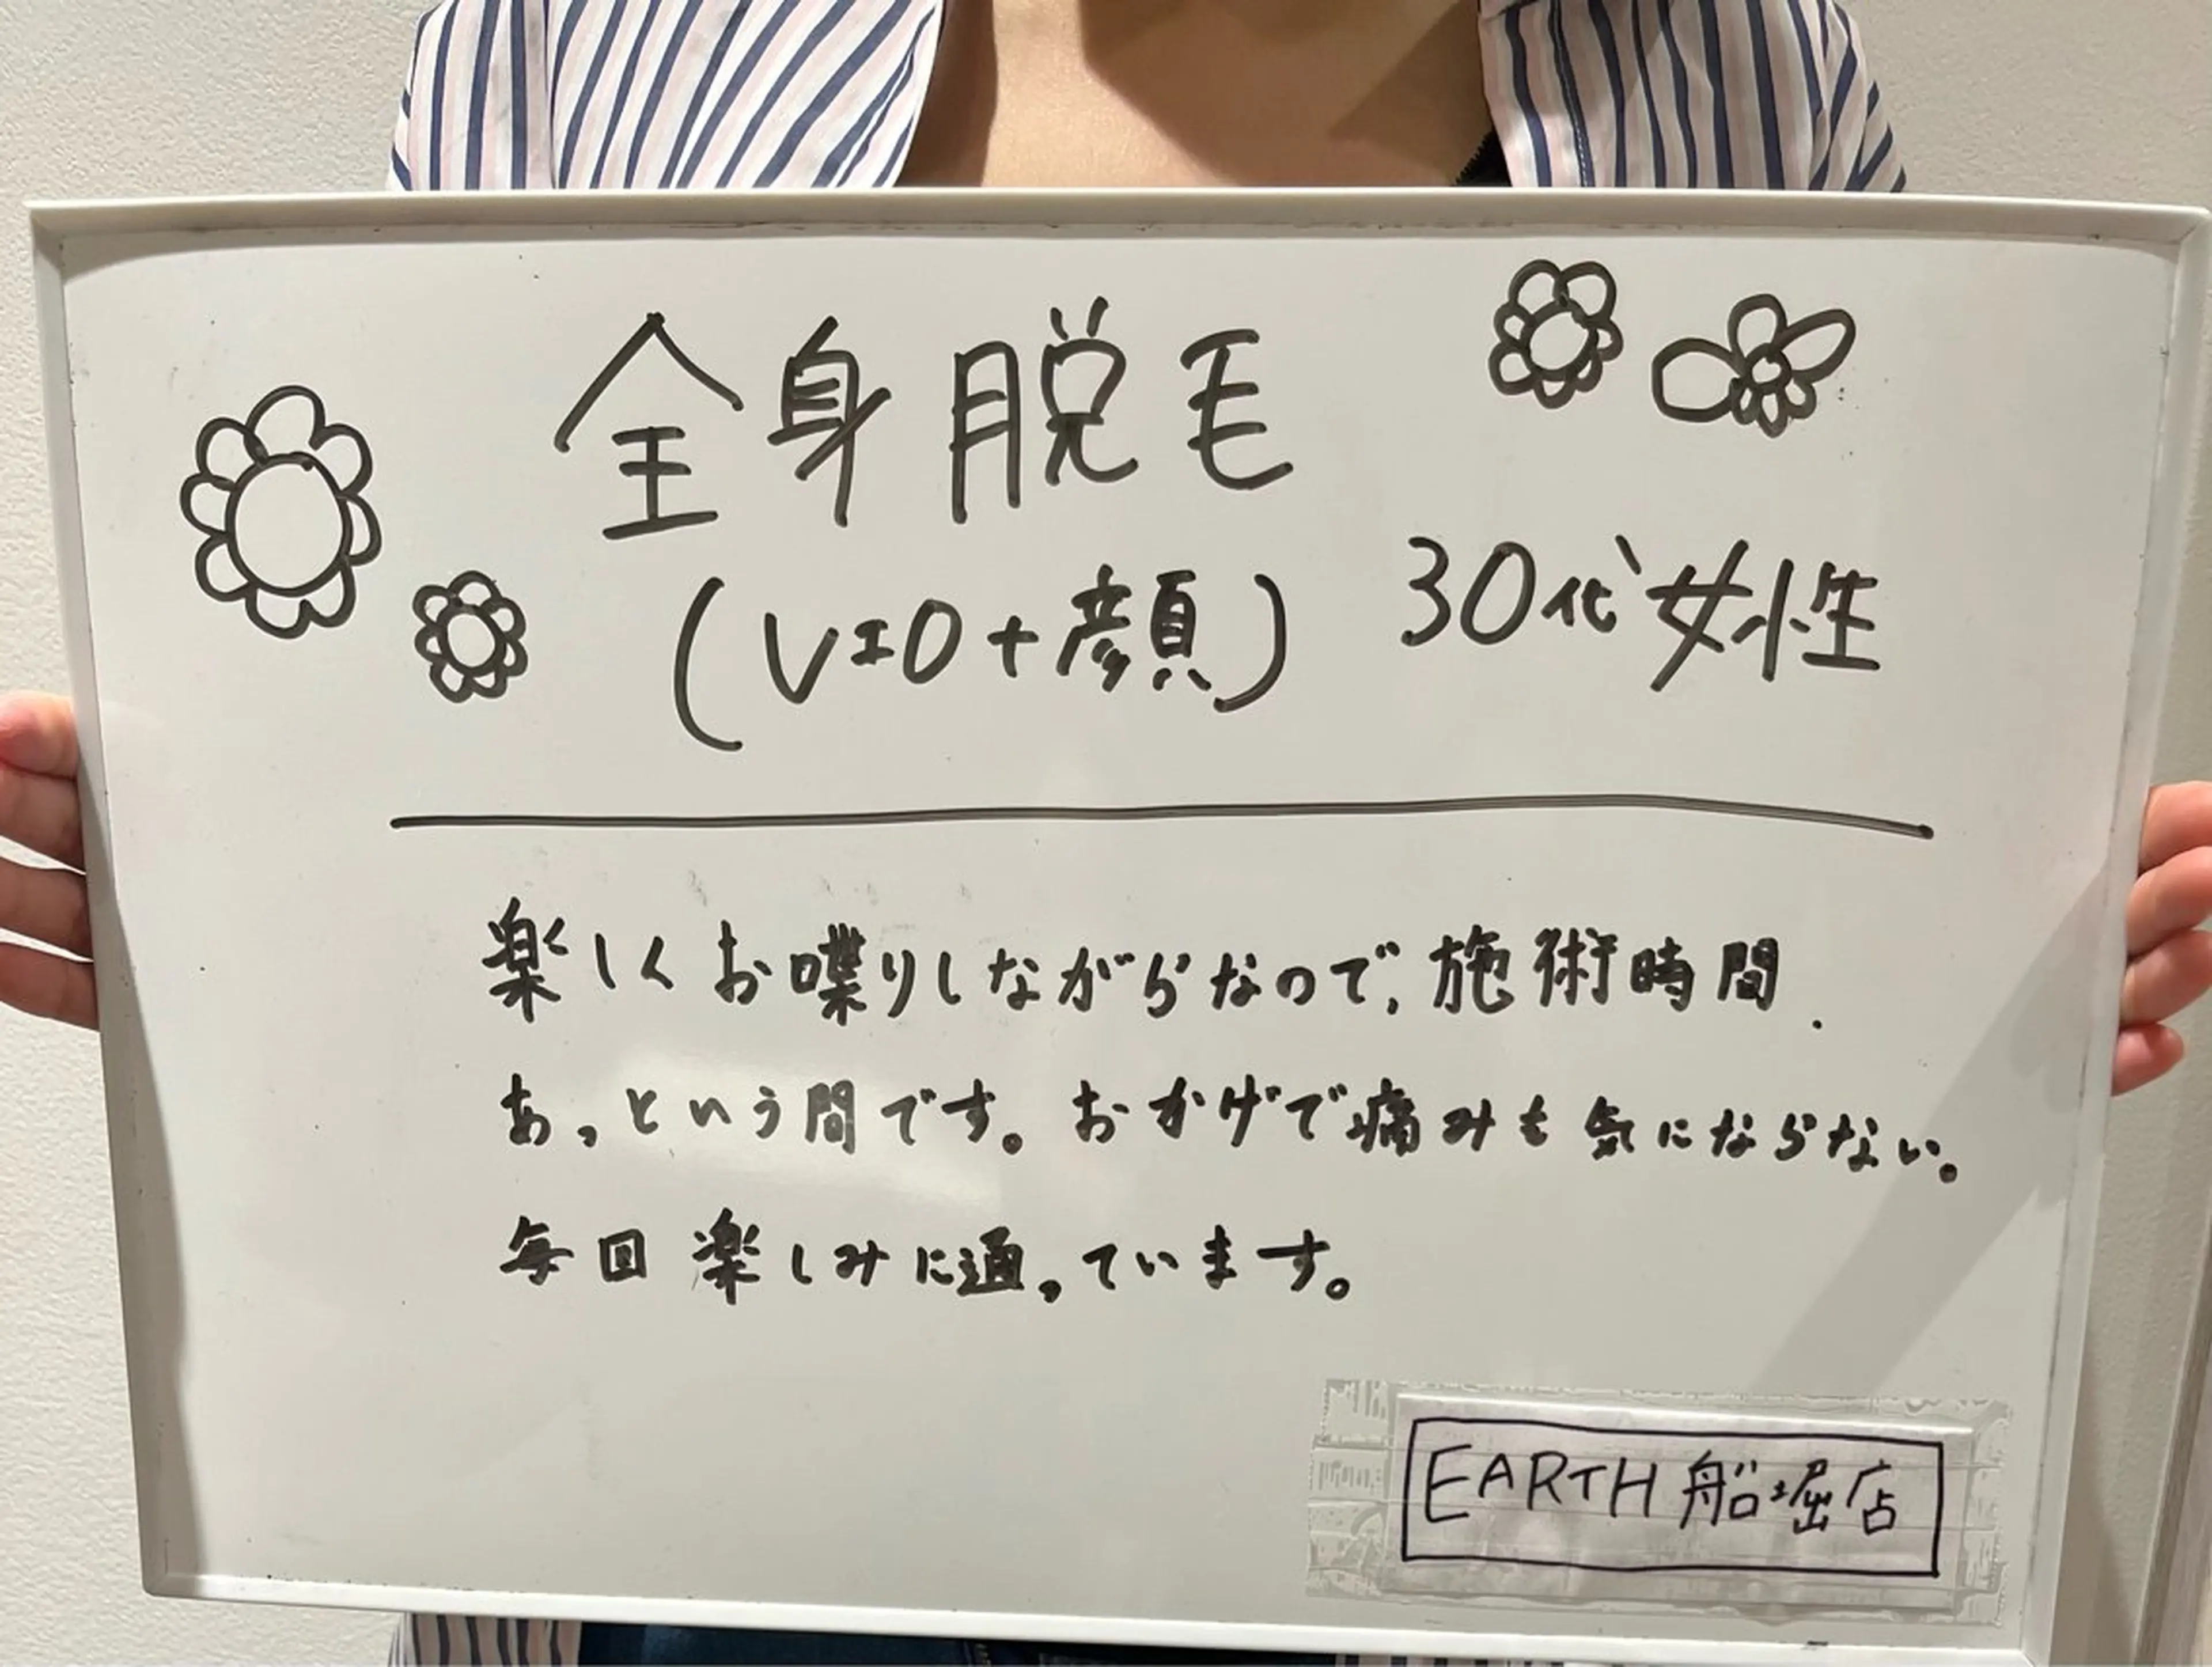 全身脱毛
(VIO+顔) 30代女性
楽しくお喋りしながらなので、施術時間
あっという間です。おかげで痛みも気にならない。
毎回楽しみに通っています。
EARTH 船堀店